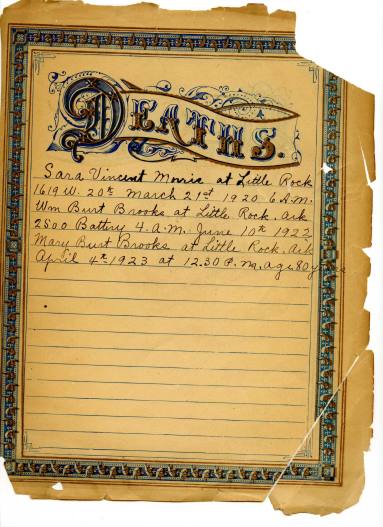 DEATHS.
Sara Vincent Morris at Little Rock
1619 W. 20th March 21st 1920 6 A.M.
Wm Burt Brooks at Little Rock, Ark
2800 Battery 4. A.M. June 10th 1922
Mary Burt Brooks at Little Rock, Ark
April 4th 1923 at 12.30 P.M. age 80 years